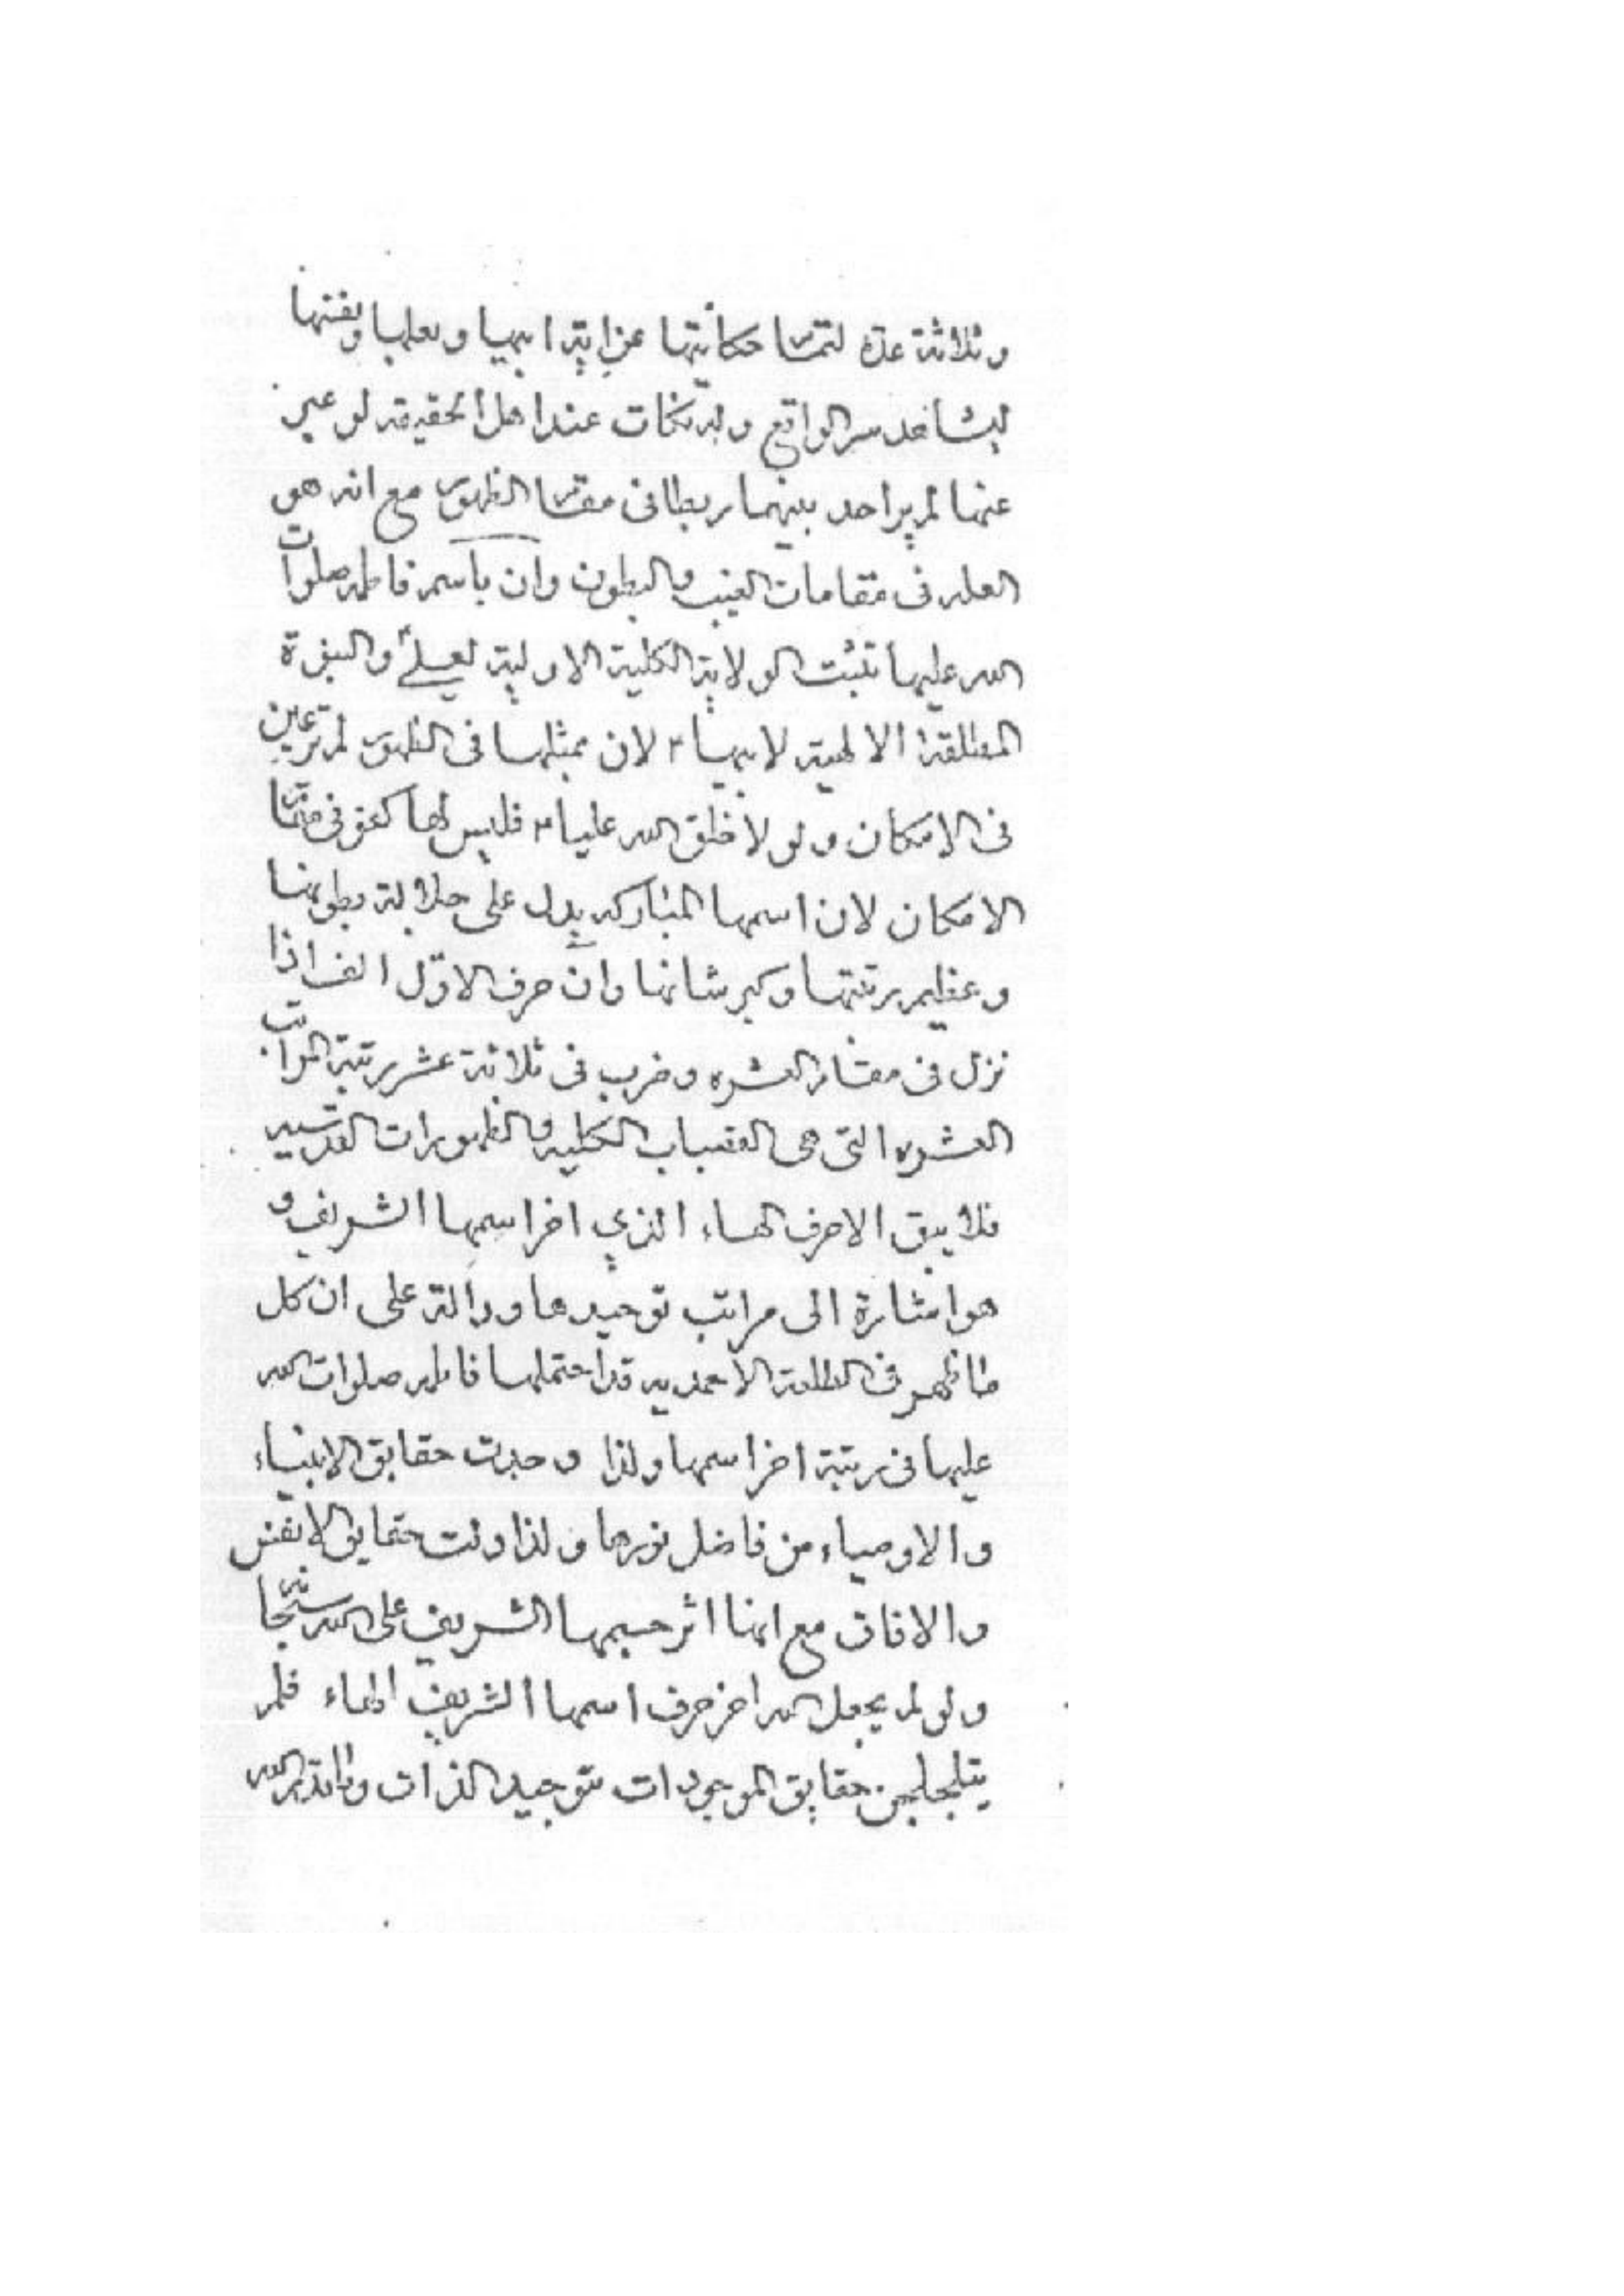 وثلاثة عده لتمام حكايتها عن اية ابيها وبعلها ونفسها
ليشاهد سر الواقع وليه نكات عند اهل الحقيقه لو عبر
عنها لم ير احد بينهما ربطا فى مقام الظهور مع انه هو
العله فى مقامات الغيب والبطون وان باسم فاطمه صلوات
الله عليها تثبت الولاية الكلية الاولية لعلى والنبوة
المطلقة الالهية لابيها لان بمثلها فى الظهور لم تر عين
فى الامكان ولو لا خلق الله عليا فليس لها كفو فى مقام
الامكان لان اسمها المباركه يدل على جلالة بطونها
وعظيم رتبتها وكبر شانها وان حرف الاول الف اذا
نزل فى مقام العشره وضرب فى ثلاثة عشر رتبة المراتب
العشره التى هى القصبات الكليه والظهورات القدسيه
فلا يبق الا حرف الهاء الذي اخر اسمها الشريف و
هو اشارة الى مراتب توحيدها ودالة على ان كل
ما ظهر فى الطلعة الاحمديه قد احتملها فاطمه صلوات الله
عليها فى رتبة اخر اسمها ولذا وجدت حقايق الانبياء
والاوصياء من فاضل نورها ولذا دلت حقايق الانفس
والافاق مع انها اثر جسمها الشريف على الله سبحانه
ولو لم يجعل الله اخر حرف اسمها الشريف الهاء فلم
يتلجلجن حقايق الموجودات بتوحيد الذات الله